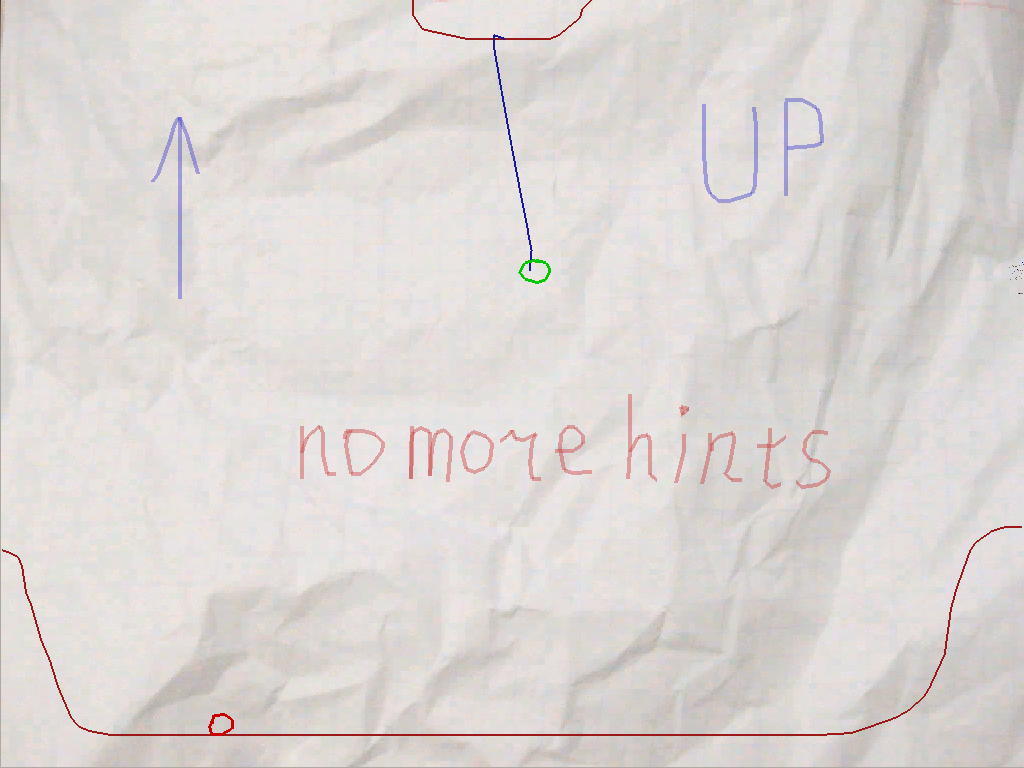 UP
no more hints